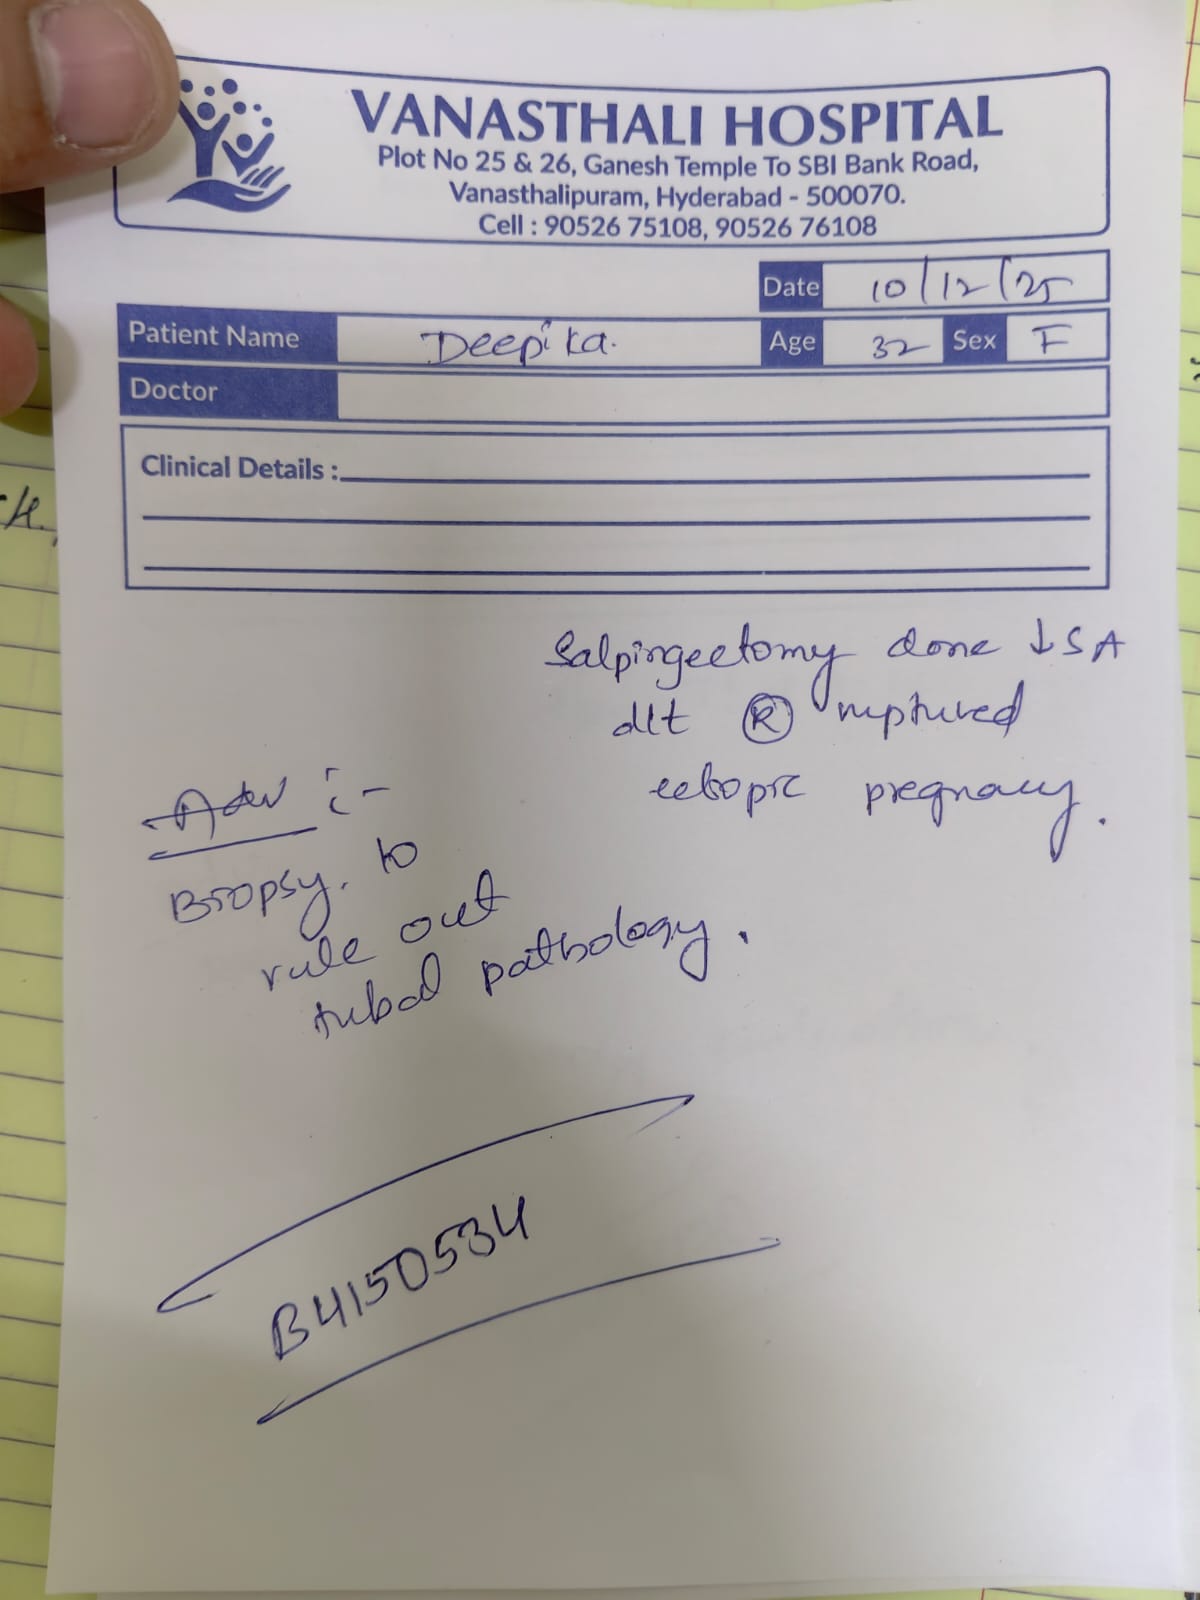 VANASTHALI HOSPITAL
Plot No 25 & 26, Ganesh Temple To SBI Bank Road,
Vanasthalipuram, Hyderabad - 500070.
Cell : 90526 75108, 90526 76108
Date 10/12/25
Patient Name Deepika. Age 32 Sex F
Doctor
Clinical Details :
Salpingectomy done ↓ SA
d/t Ⓡ ruptured
ectopic pregnancy.
Adv :-
Biopsy. to
rule out
tubal pathology.
B4150534